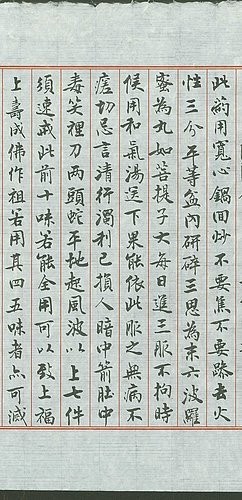 此葯用寬心鍋間炒不要焦不要躁去火
性三分平等盆內研碎三思為末六波羅
蜜為丸如菩提子大每日進三服不拘時
候用和氣湯送下果能依此服之無病不
瘥切忌言清行濁利己損人暗中箭肚中
毒笑裡刀兩頭蛇平地起風波以上七件
須速戒此前十味若能全用可以致上福
上壽成佛作祖若用其四五味者亦可滅